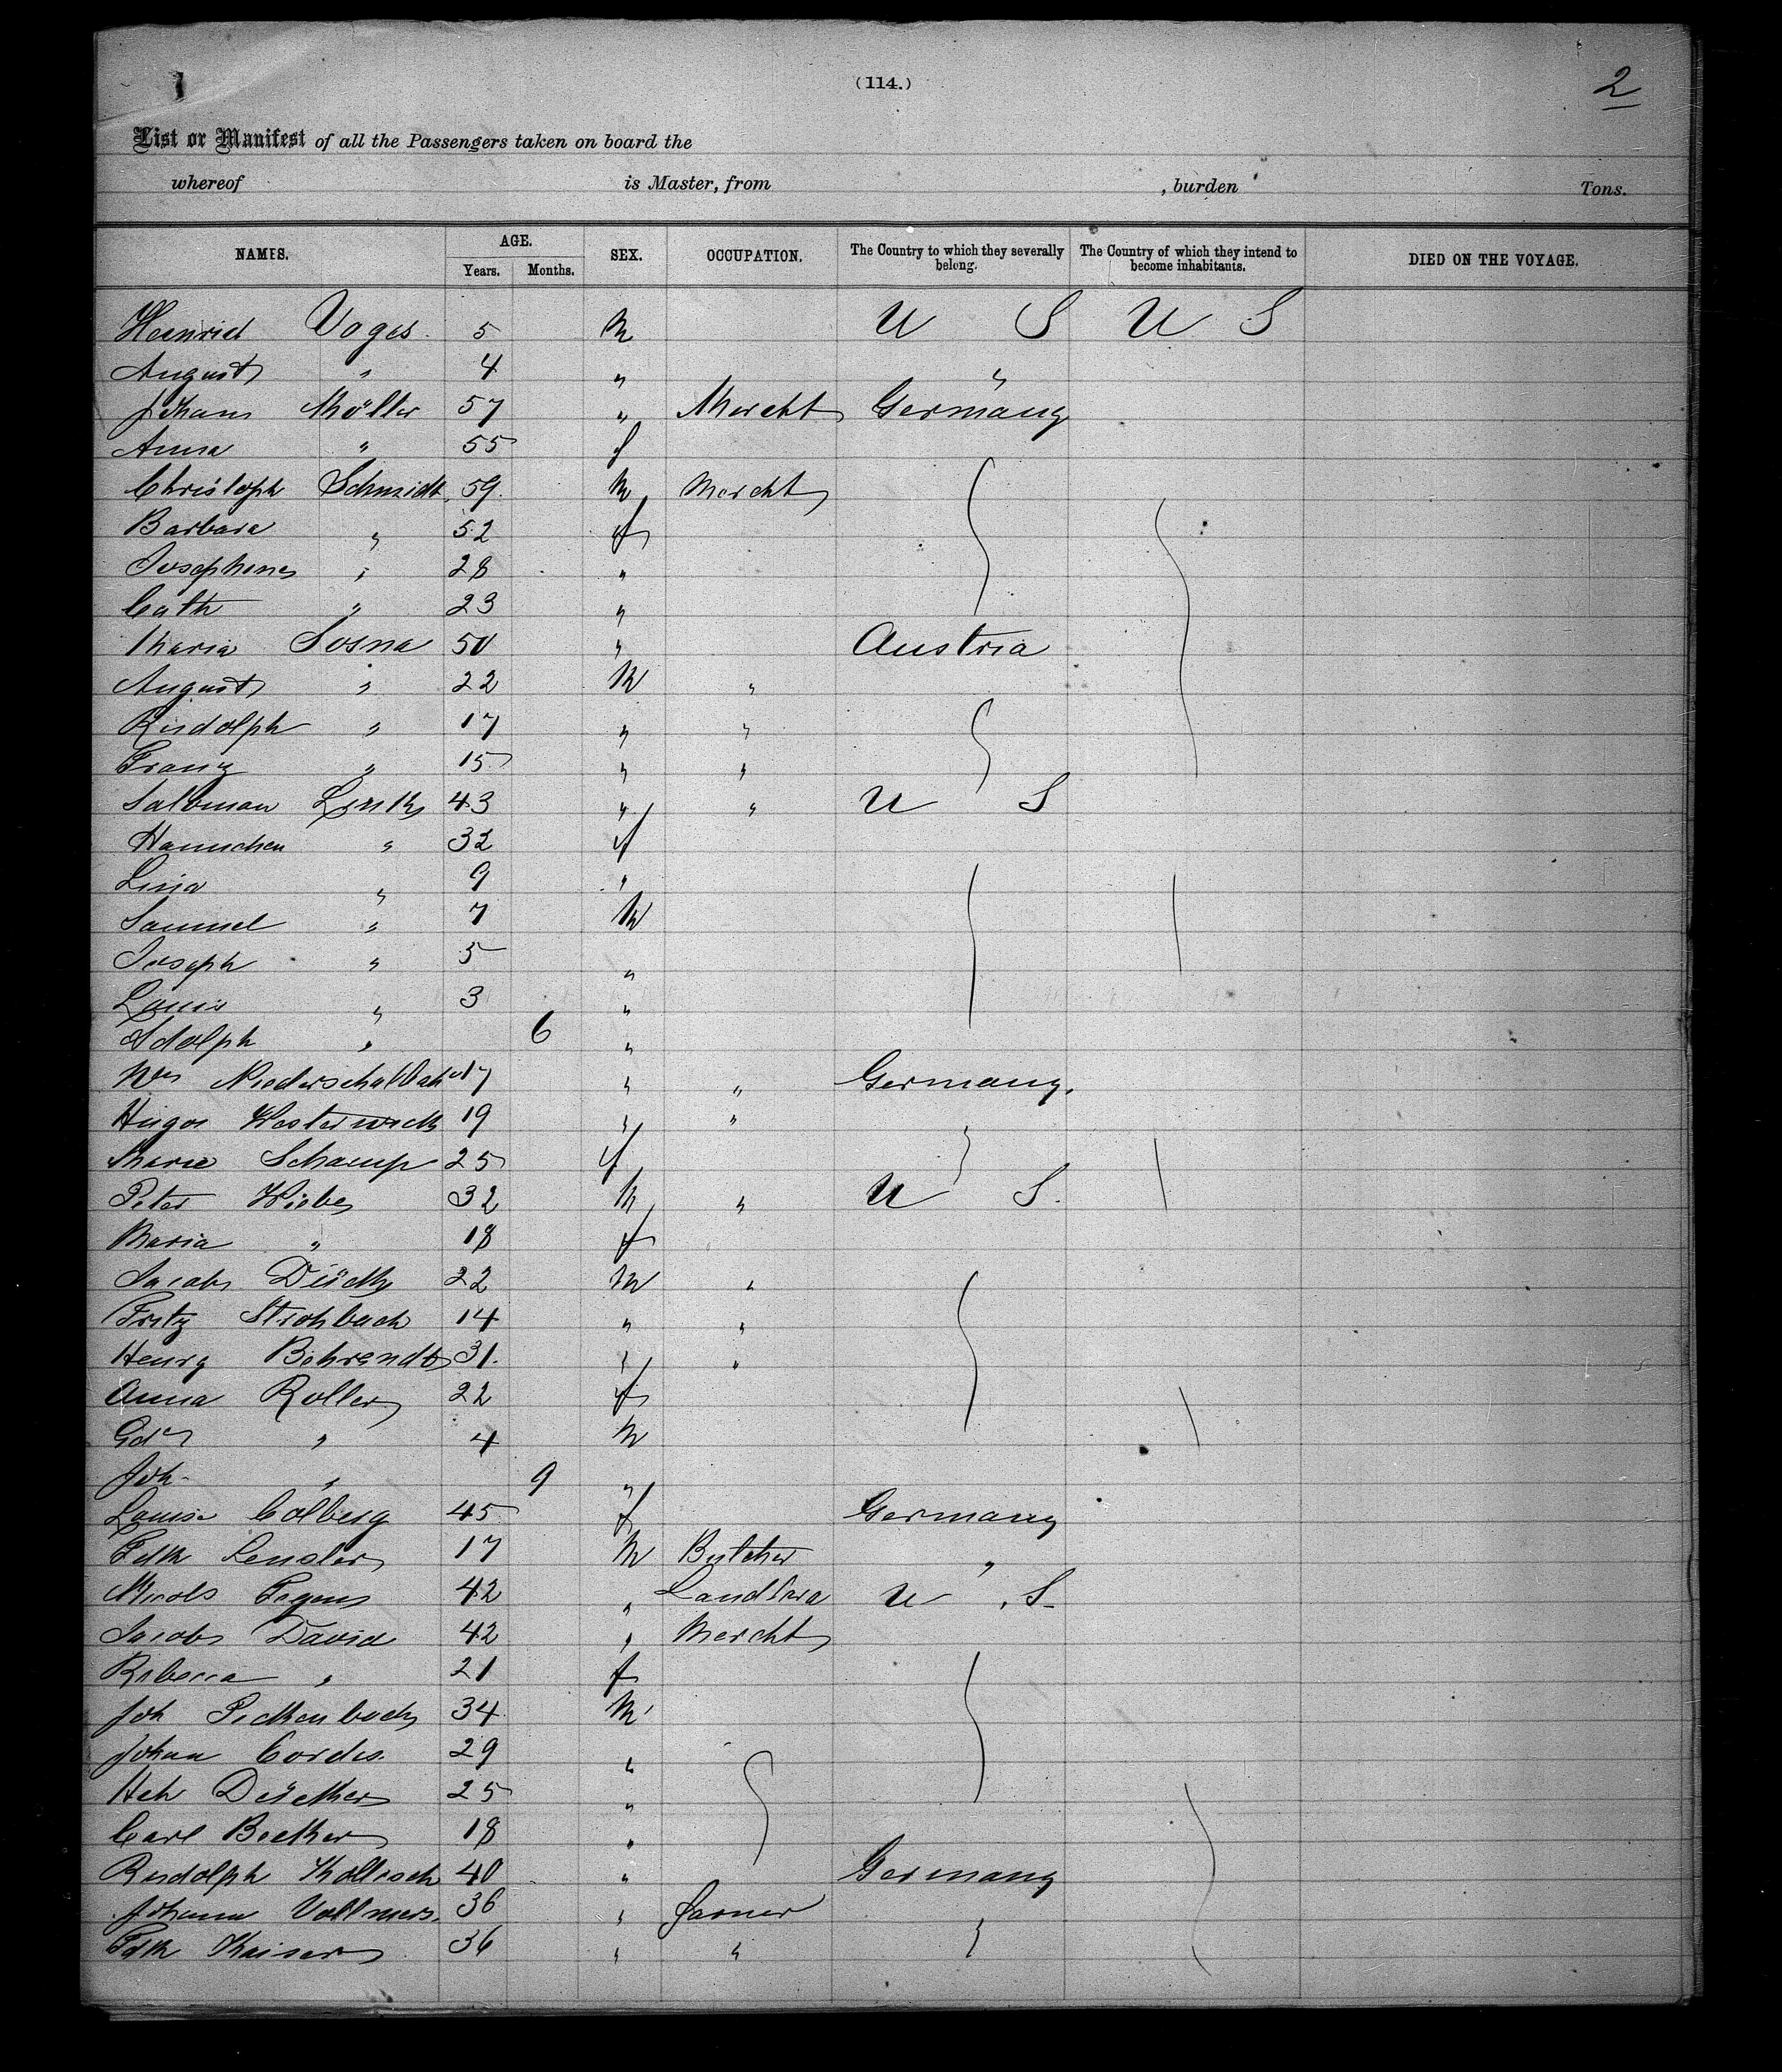 (114.)
2
List or Manifest of all the Passengers taken on board the
whereof is Master, from , burden Tons.
NAMES. AGE. Years. Months. SEX. OCCUPATION. The Country to which they severally belong. The Country of which they intend to become inhabitants. DIED ON THE VOYAGE.
Heinrich Voges 5 M U S U S
August " 4 " "
Johann Möller 57 " Mercht Germany
Anna " 55 f
Christoph Schmidt 59 M Mercht
Barbara " 52 f
Josephine " 28 "
Cath " 23 "
Maria Sosna 50 " Austria
August " 22 M "
Rudolph " 17 " "
Franz " 15 " "
Salomon 43 " " U S
Hannchen " 32 f
Lina " 9 "
Samuel " 7 M
Joseph " 5 "
Louis " 3 "
Adolph " 6 "
Wm 17 " " Germany.
Hugo 19 " "
Marie Schaup 25 f
Peter Wiebe 32 M " U S.
Maria " 18 f
Jacob 22 M "
Fritz Strohbach 14 " "
Henry Behrendt 31. " "
Anna Roller 22 f
Edw " 4 M
Joh " 9 "
Louise Colberg 45 f Germany
Fdk 17 M Butcher "
42 " U S.
Jacob David 42 " Mercht
Rebecca " 21 f
Joh 34 M
Johan Cordes 29 "
Hch 25 "
Carl Becker 18 "
Rudolph 40 " Germany
Johann Vollmers. 36 " farmer
Fdk Kaiser 36 " "